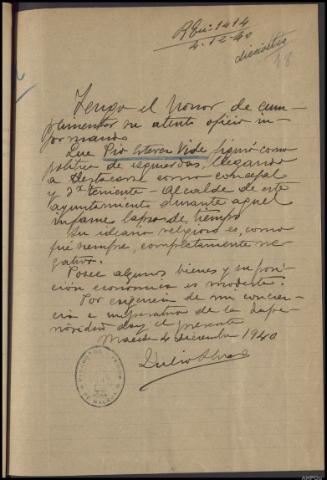 REu: 1414
4-12-40
dieciocho
18
Tengo el honor de cum-
plimentar su atento oficio in-
formando
Que Pio Esteven Vide figuró como
politico de izquierdas, llegando
a destacarse como concejal
y 3er teniente-Alcalde de este
ayuntamiento durante aquel
infame lapso de tiempo
Su ideario religioso es, como
fué siempre, completamente ne
gativo.
Posee algunos bienes y su posi-
ción económica es modesta.
Por exigencia de mi concien-
cia e imperativo de la Supe-
rioridad doy el presente
Maceda 4 diciembre 1940